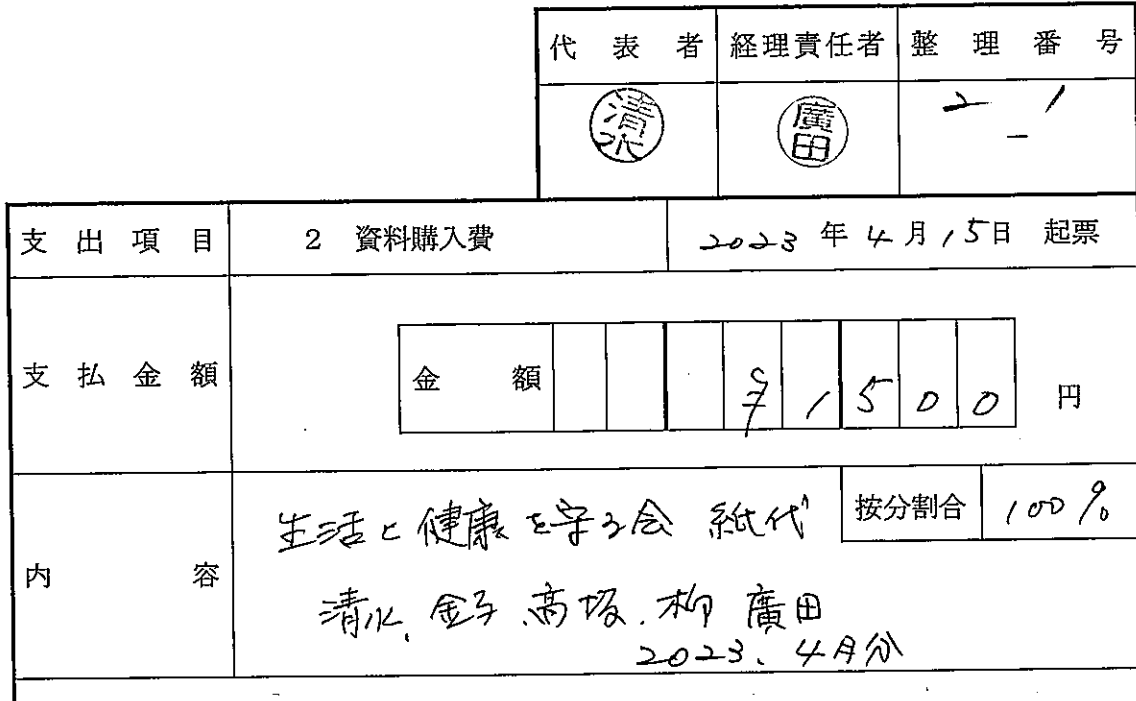 代表者 経理責任者 整理番号
清水 廣田 2-1
支出項目 2 資料購入費 2023年4月15日 起票
支払金額 金額 ¥1500 円
生活と健康を守る会 紙代 按分割合 100%
内容
清水、金子、高坂、柳 廣田
2023、4月分